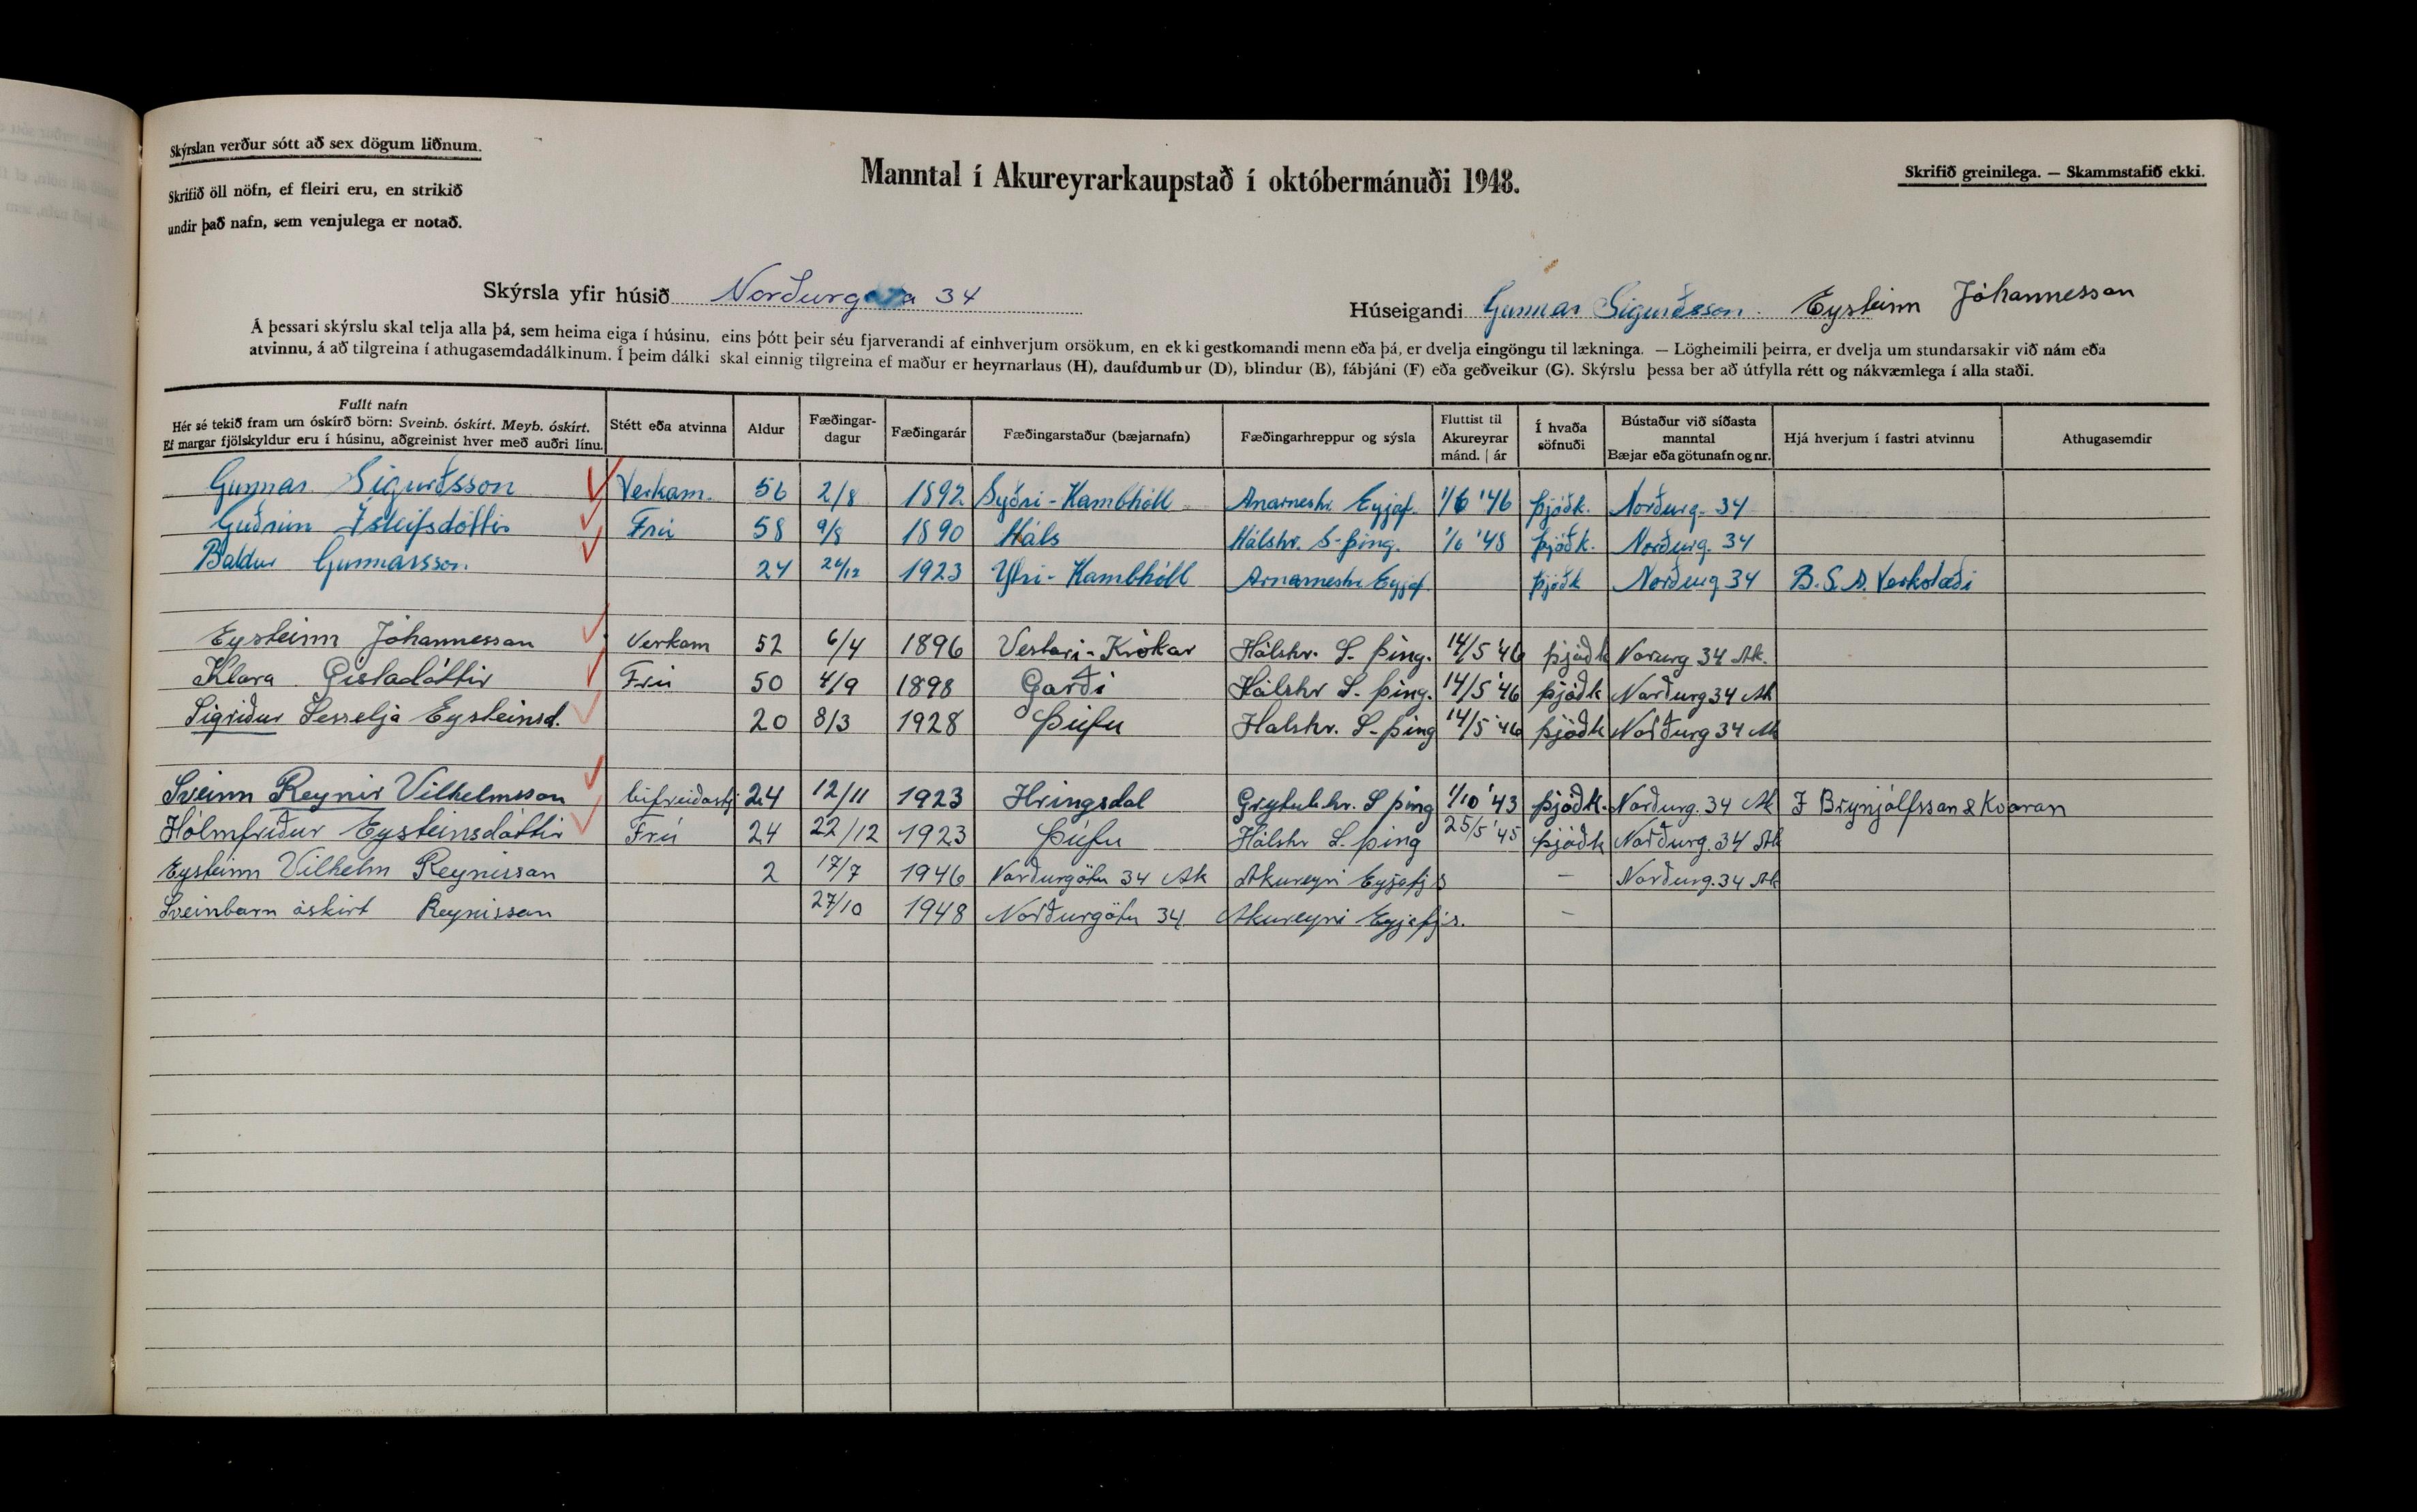 Skýrslan verður sótt að sex dögum liðnum.
Skrifið öll nöfn, ef fleiri eru, en strikið
undir það nafn, sem venjulega er notað.
Manntal í Akureyrarkaupstað í októbermánuði 1948.
Skrifið greinilega. — Skammstafið ekki.
Skýrsla yfir húsið Norðurgata 34
Húseigandi Gunnar Sigurðsson. Eysteinn Jóhannesson
Á þessari skýrslu skal telja alla þá, sem heima eiga í húsinu, eins þótt þeir séu fjarverandi af einhverjum orsökum, en ekki gestkomandi menn eða þá, er dvelja eingöngu til lækninga. — Lögheimili þeirra, er dvelja um stundarsakir við nám eða
atvinnu, á að tilgreina í athugasemdadálkinum. Í þeim dálki skal einnig tilgreina ef maður er heyrnarlaus (H), daufdumbur (D), blindur (B), fábjáni (F) eða geðveikur (G). Skýrslu þessa ber að útfylla rétt og nákvæmlega í alla staði.
Fullt nafn
Hér sé tekið fram um óskírð börn: Sveinb. óskírt. Meyb. óskírt.
Ef margar fjölskyldur eru í húsinu, aðgreinist hver með auðri línu.
Stétt eða atvinna
Aldur
Fæðingar-
dagur
Fæðingarár
Fæðingarstaður (bæjarnafn)
Fæðingarhreppur og sýsla
Fluttist til
Akureyrar
mánd. | ár
Í hvaða
söfnuði
Bústaður við síðasta
manntal
Bæjar eða götunafn og nr.
Hjá hverjum í fastri atvinnu
Athugasemdir
Gunnar Sigurðsson Verkam. 56 2/8 1892 Syðri-Kambhóll Anarneshr. Eyjaf. 1/6 '46 þjóðk. Norðurg. 34
Guðrún Ísleifsdóttir Frú 58 9/8 1890 Háls Hálshr. S-þing. 1/6 '48 þjóðk. Norðurg. 34
Baldur Gunnarsson. 24 1923 Ytri-Kambhóll Arnarneshr. Eyjaf. þjóðk Norðurg 34 B.S.A. Verkstæði
Eysteinn Jóhannesson Verkam 52 6/4 1896 Vestari-Krókar Hálshr. S. þing. 14/5 '46 þjóðk Norurg 34 Ak.
Klara Gísladóttir Frú 50 4/9 1898 Garði Hálshr S. þing. 14/5 '46 þjóðk Norðurg 34 Ak
Sigríður Sesselja Eysteinsd. 20 8/3 1928 Þúfu Halshr. S. þing 14/5 '46 þjóðk Norðurg 34 Ak
Sveinn Reynir Vilhelmsson bifreiðastj 24 12/11 1923 Hringsdal Grýtub.hr. S þing 1/10 '43 þjóðk. Norðurg. 34 Ak J Brynjólfsson & Kvaran
Hólmfríður Eysteinsdóttir Frú 24 22/12 1923 Þúfu Hálshr S. þing 25/5 '45 þjóðk Norðurg. 34 Ak
Eysteinn Vilhelm Reynisson 2 17/7 1946 Norðurgötu 34 Ak Akureyri Eyjafj s — Norðurg. 34 Ak
Sveinbarn óskírt Reynisson 27/10 1948 Norðurgötu 34 Akureyri Eyjafjs. —